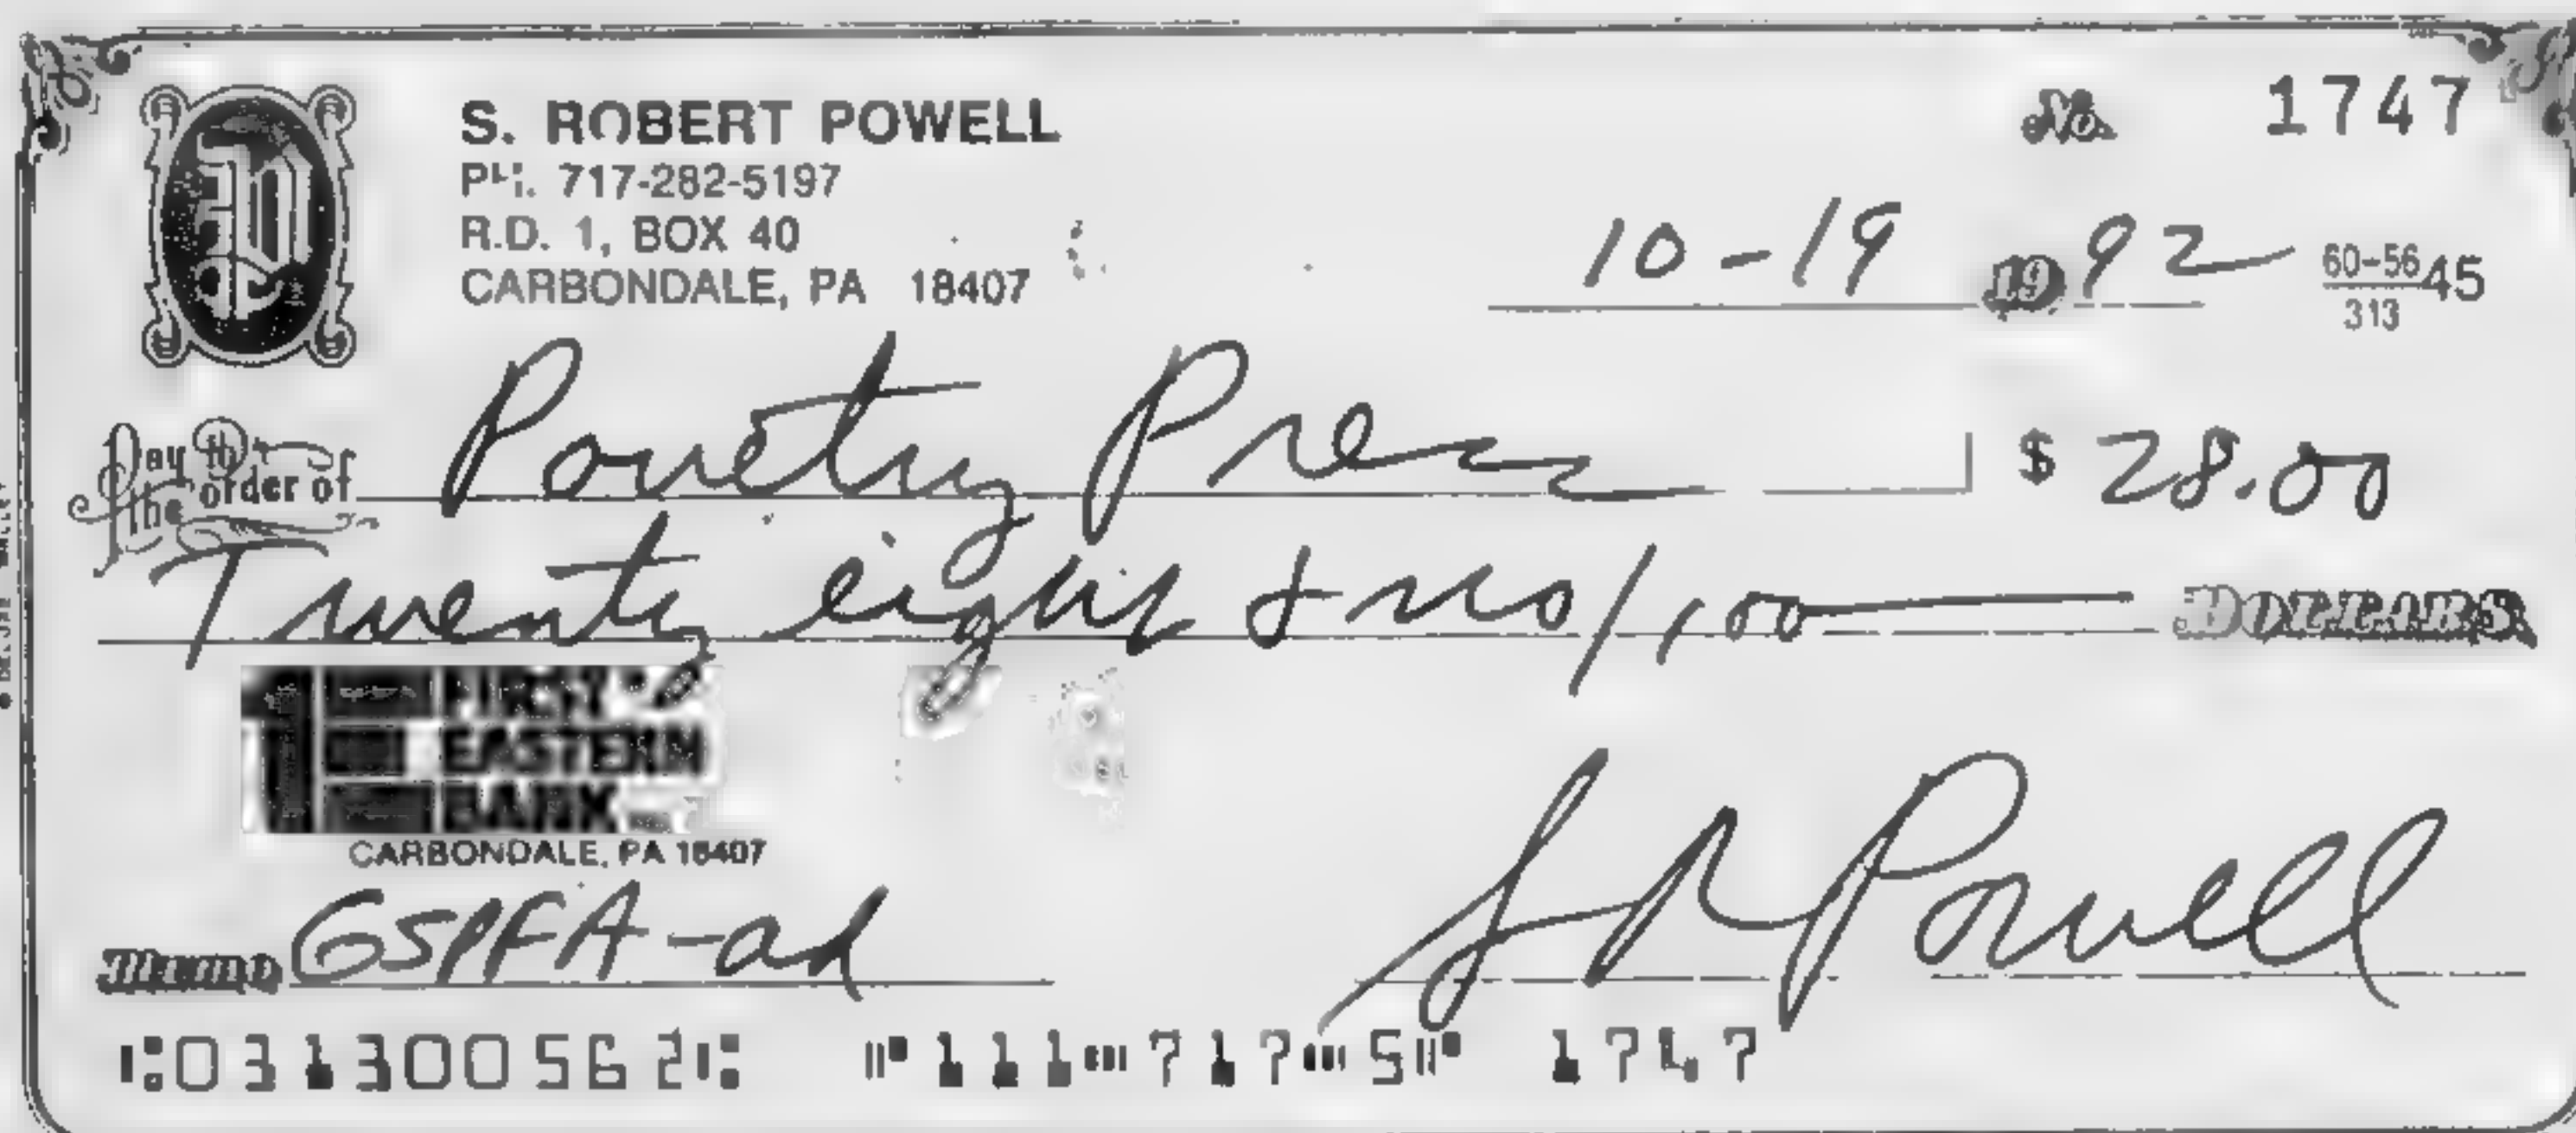 S. ROBERT POWELL
No. 1747
PH. 717-282-5197
R.D. 1, BOX 40
CARBONDALE, PA 18407
10-19 1992
60-5645
313
Pay to the order of Pouetry Press $ 28.00
Twenty eight & no/100 DOLLARS
FIRST
EASTERN
BANK
CARBONDALE, PA 18407
Memo GSPFA-ad S R Powell
⑆031300562⑆ ⑈111⑉717⑉5⑈ 1747